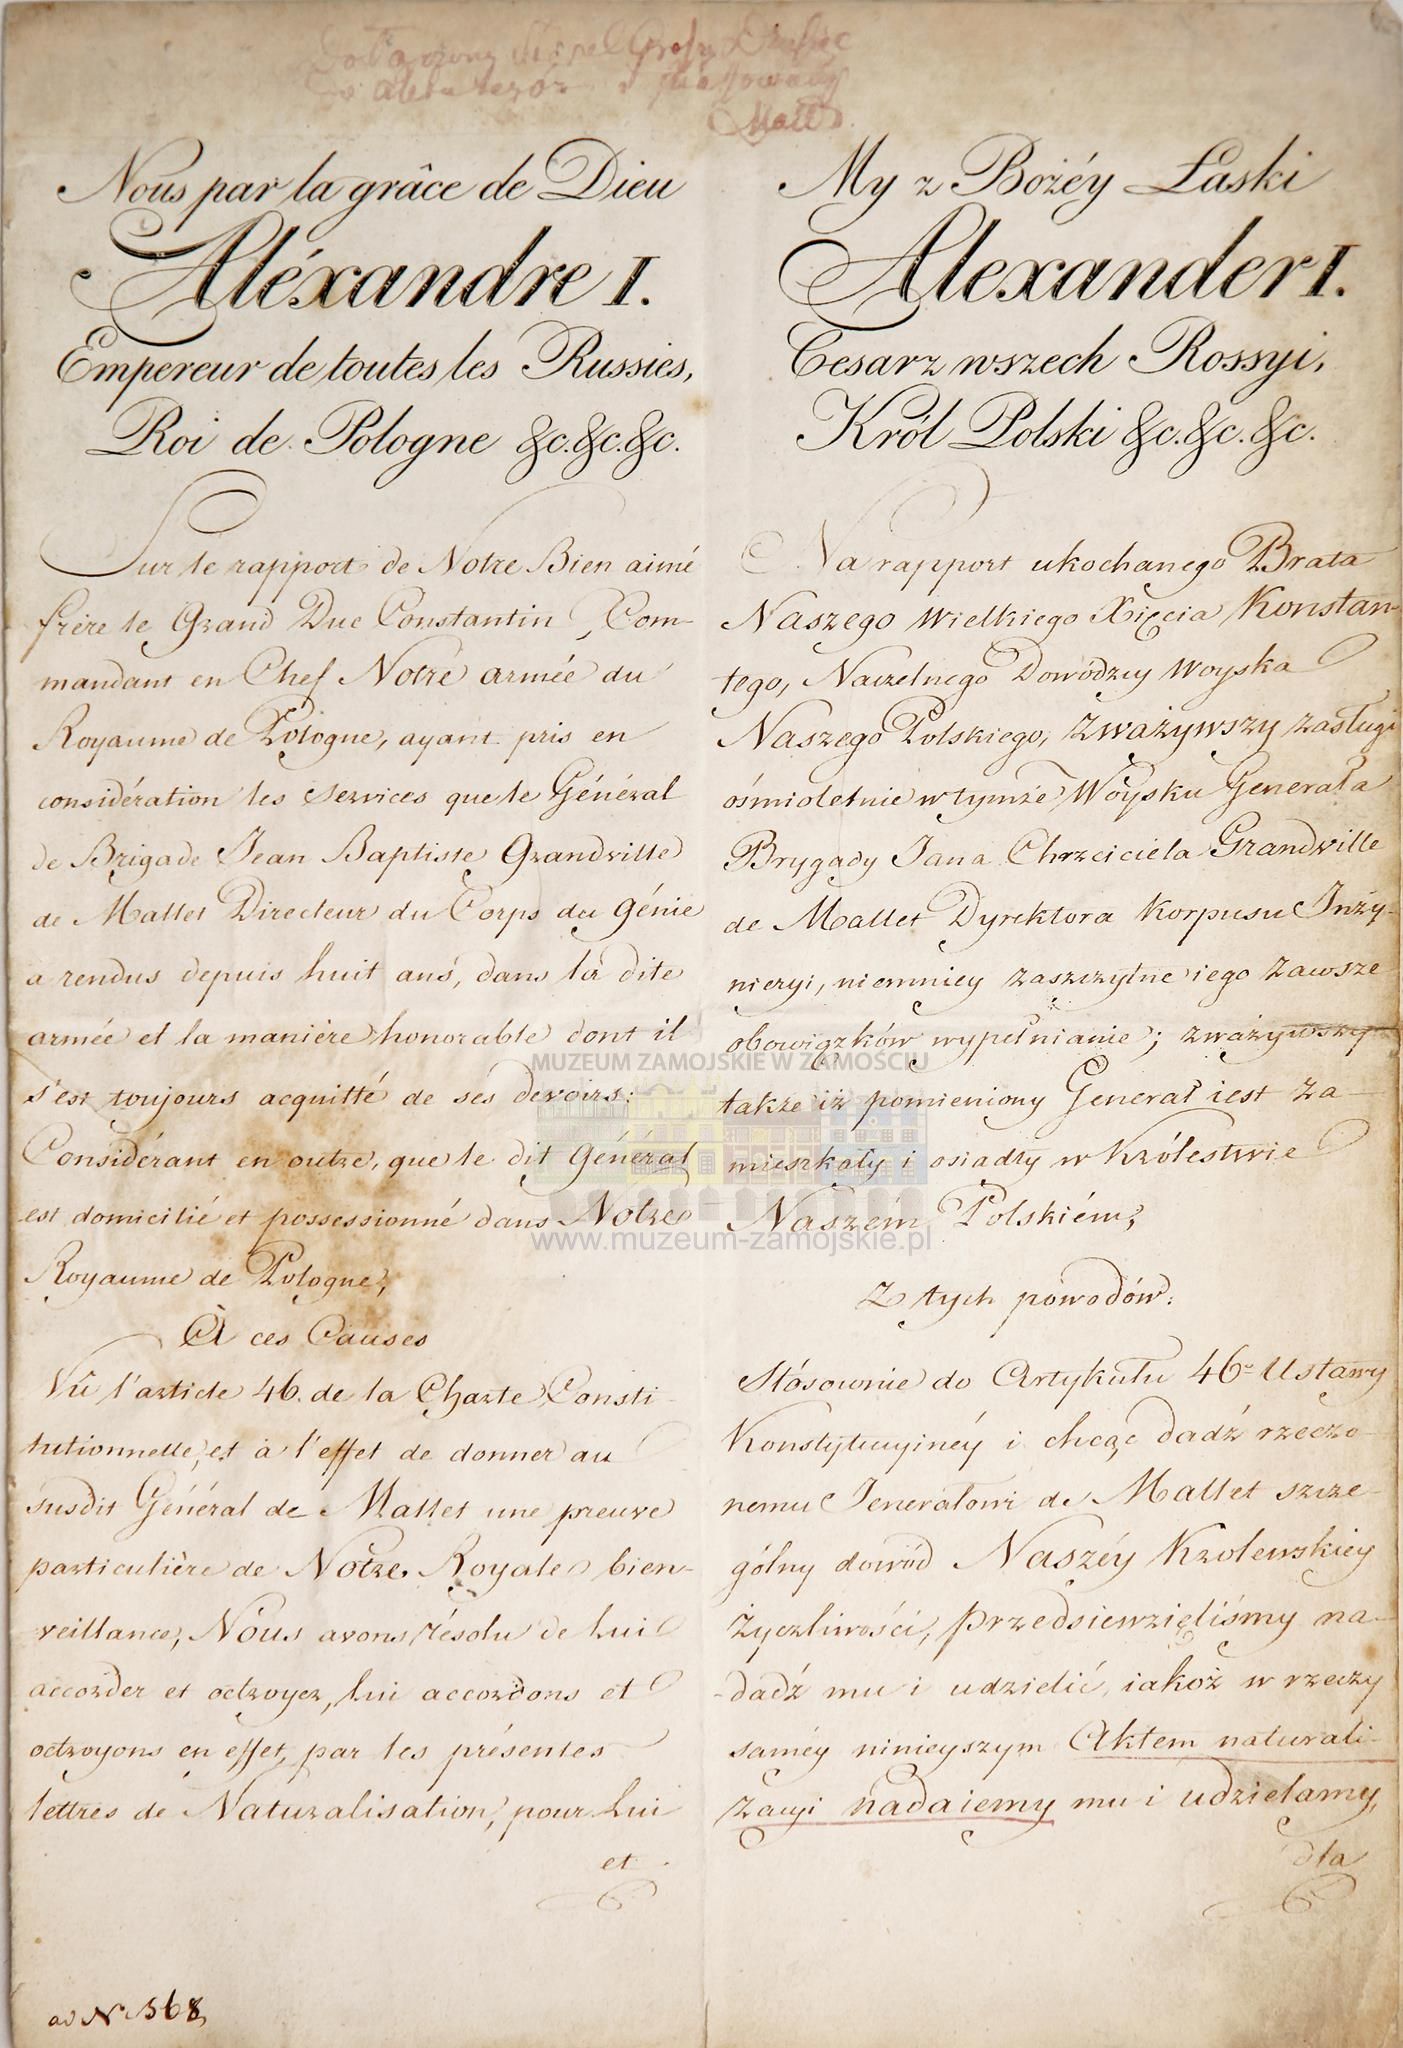 Nous par la grâce de Dieu
Aléxandre I.
Empereur de toutes les Russies,
Roi de Pologne &c. &c. &c.
Sur le rapport de Notre Bien aimé
frère le Grand Duc Constantin, Com-
mandant en Chef Notre armée du
Royaume de Pologne, ayant pris en
considération les services que le Général
de Brigade Jean Baptiste Grandville
de Mallet Directeur du Corps du génie
a rendus depuis huit ans, dans la dite
armée et la manière honorable dont il
s'est toujours acquitté de ses devoirs:
Considérant en outre, que le dit Général
est domicilié et possessionné dans Notre
Royaume de Pologne,
À ces Causes
Vû l'article 46. de la Charte Consti-
tutionnelle, et à l'effet de donner au
susdit Général de Mallet une preuve
particulière de Notre Royale bien-
veillance, Nous avons résolu de lui
accorder et octroyer, lui accordons et
octroyons en effet, par les présentes
lettres de Naturalisation, pour lui
et
ad N. 568
My z Bożéy Łaski
Alexander I.
Cesarz wszech Rossyi,
Król Polski &c. &c. &c.
Na rapport ukochanego Brata
Naszego Wielkiego Xięcia Konstan-
tego, Naczelnego Dowódzcy Woyska
Naszego Polskiego, zważywszy zasługi
ośmioletnie w tymże Woysku Generała
Brygady Jana Chrzciciela Grandville
de Mallet Dyrektora Korpusu Inży-
nieryi, niemniey zaszczytne iego zawsze
obowiązków wypełnianie; zważywszy
także iż pomieniony Generał iest za-
mieszkały i osiadły w Królestwie
Naszém Polskiém;
Z tych powodów:
Stósownie do Artykułu 46. Ustawy
Konstytucyinéy i chcąc dadź rzeczo-
nemu Jenerałowi de Mallet szcze-
gólny dowód Naszéy Krolewskiey
Życzliwości, przedsiewzięliśmy na-
dadź mu i udzielić, iakoż w rzeczy
saméy ninieyszym Aktem naturali-
zacyi nadaiemy mu i udzielamy,
dla
MUZEUM ZAMOJSKIE W ZAMOŚCIU
www.muzeum-zamojskie.pl